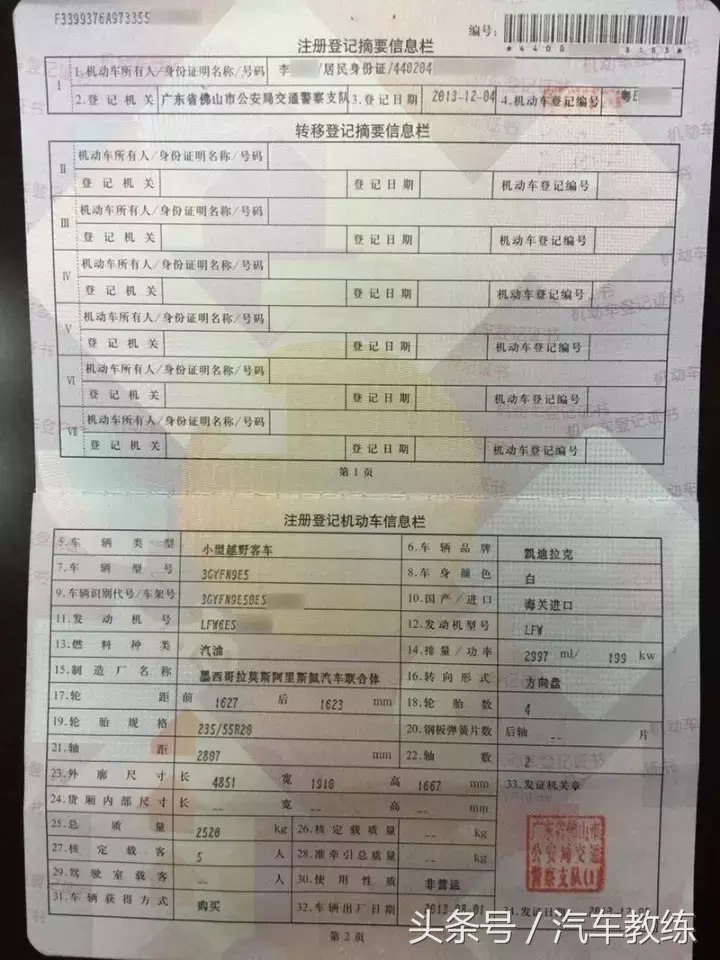 F3399376A973355
编号:
*4400 8183*
注册登记摘要信息栏
Ⅰ 1.机动车所有人/身份证明名称/号码 李 /居民身份证/440204
2.登记机关 广东省佛山市公安局交通警察支队 3.登记日期 2013-12-04 4.机动车登记编号 粤E
转移登记摘要信息栏
Ⅱ 机动车所有人/身份证明名称/号码
登记机关 登记日期 机动车登记编号
Ⅲ 机动车所有人/身份证明名称/号码
登记机关 登记日期 机动车登记编号
Ⅳ 机动车所有人/身份证明名称/号码
登记机关 登记日期 机动车登记编号
Ⅴ 机动车所有人/身份证明名称/号码
登记机关 登记日期 机动车登记编号
Ⅵ 机动车所有人/身份证明名称/号码
登记机关 登记日期 机动车登记编号
Ⅶ 机动车所有人/身份证明名称/号码
登记机关 登记日期 机动车登记编号
第1页
注册登记机动车信息栏
5.车辆类型 小型越野客车 6.车辆品牌 凯迪拉克
7.车辆型号 3GYFN9E5 8.车身颜色 白
9.车辆识别代号/车架号 3GYFN9E58ES 10.国产/进口 海关进口
11.发动机号 LFW6ES 12.发动机型号 LFW
13.燃料种类 汽油 14.排量/功率 2997 ml/ 199 kw
15.制造厂名称 墨西哥拉莫斯阿里斯佩汽车联合体 16.转向形式 方向盘
17.轮距 前 1627 后 1623 mm 18.轮胎数 4
19.轮胎规格 235/55R20 20.钢板弹簧片数 后轴 -- 片
21.轴距 2807 mm 22.轴数 2
23.外廓尺寸 长 4851 宽 1910 高 1667 mm 33.发证机关章
24.货厢内部尺寸 长 -- 宽 -- 高 -- mm
25.总质量 2520 kg 26.核定载质量 -- kg
27.核定载客 5 人 28.准牵引总质量 -- kg
29.驾驶室载客 -- 人 30.使用性质 非营运
31.车辆获得方式 购买 32.车辆出厂日期 2013-08-01 34.发证日期
广东省佛山市
公安局交通
警察支队(1)
第2页
头条号/汽车教练